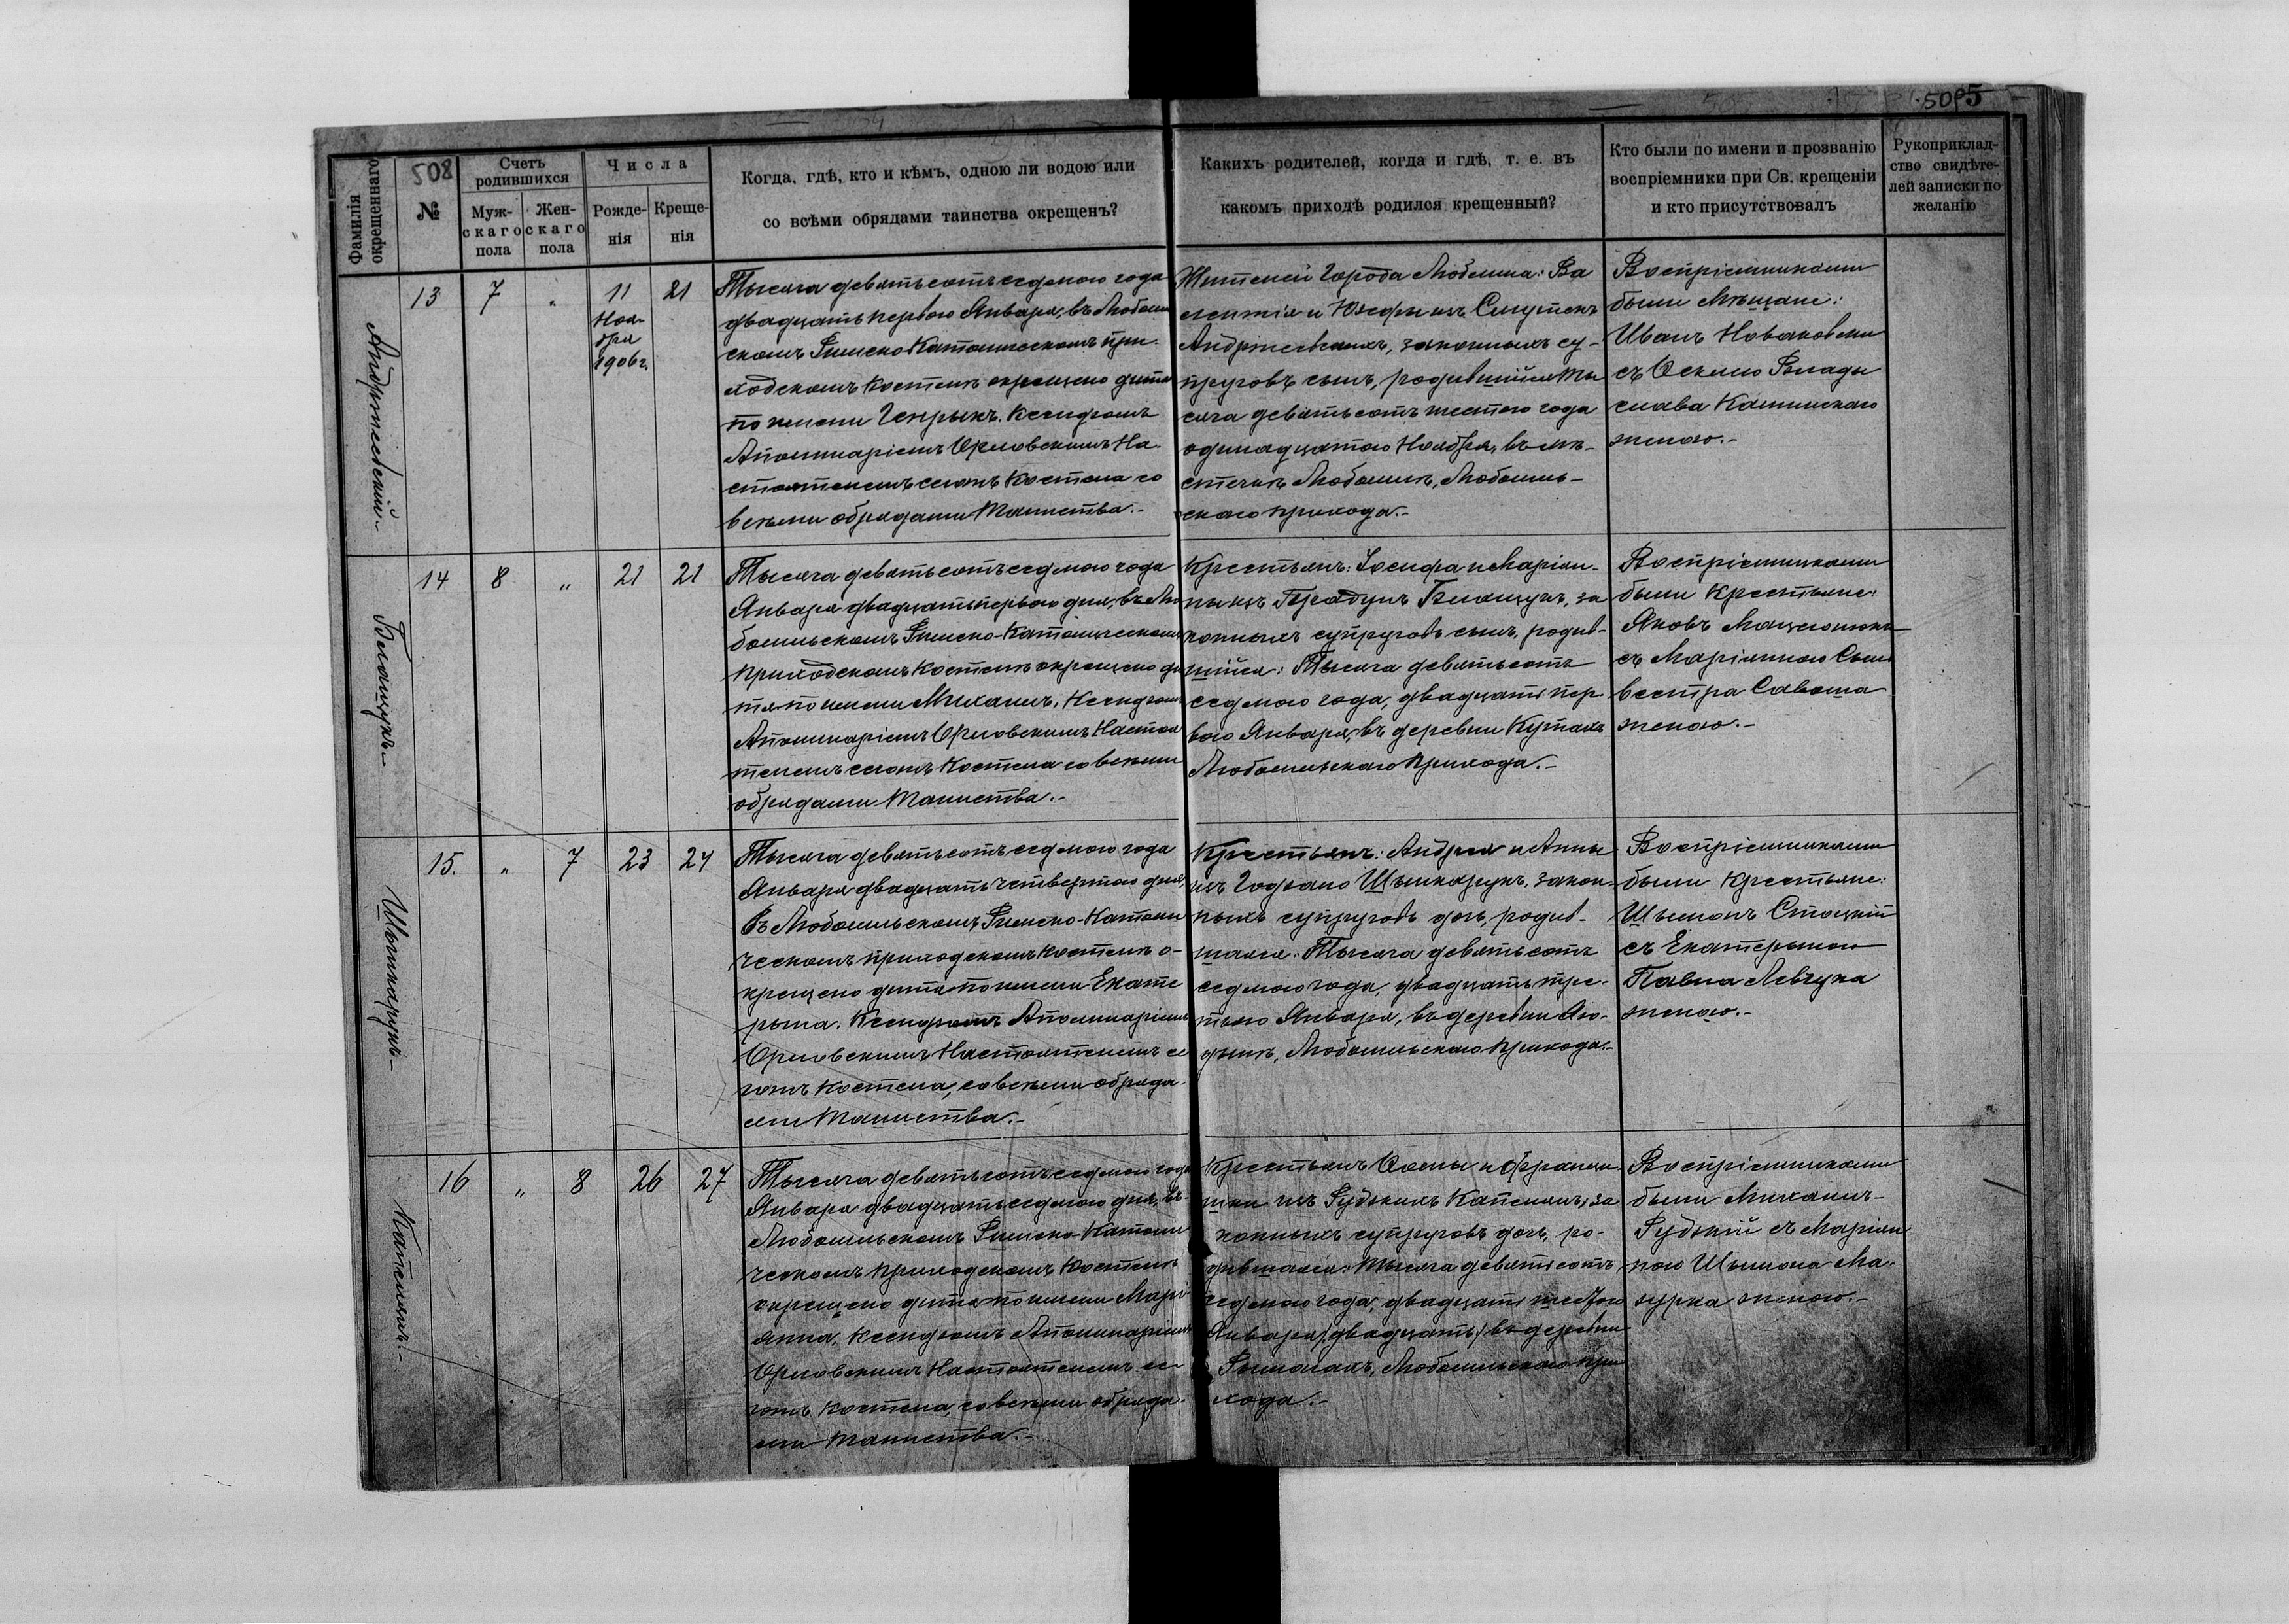 5095
Фамилія окрещеннаго
508
№
Счетъ родившихся
Муж-
скаго
пола
Жен-
скаго
пола
Числа
Рожде-
нія
Креще-
нія
Когда, гдѣ, кто и кѣмъ, одною ли водою или
со всѣми обрядами таинства окрещенъ?
Какихъ родителей, когда и гдѣ, т. е. въ
какомъ приходѣ родился крещенный?
Кто были по имени и прозванію
воспріемники при Св. крещеніи
и кто присутствовалъ
Рукоприклад-
ство свидѣте-
лей записки по
желанію
13
7
"
11
Ноя-
бря
1906 г.
21
Тысяча девятьсотъ седмого года
двадцать первого Января, въ Любомль
скомъ Римско Католическомъ при-
ходскомъ Костелѣ окрещено дитя
по имени Генрыкъ. Ксендзомъ
Аполинаріемъ Орловскимъ На-
стоятелемъ сегожъ Костела со
всѣми обрядами Таинства.-
Жителей Города
законныхъ су-
пруговъ сынъ, родившійся Ты
сяча девятьсотъ шестого года
одинадцатого Ноября, въ мѣ-
стечкѣ Любомлѣ, Любомль-
скаго прихода.-
Воспріемниками
были Мѣщане:
Иванъ Новаковски
съ Влады
слава Калинскаго
женою.-
14
8
"
21
21
Блащукъ
Тысяча девятьсотъ седмого года
Января двадцать первого дня, въ Лю
бомльскомъ Римско-Католическомъ
приходскомъ Костелѣ окрещено ди
тя по имени Михаилъ, Ксендзомъ
Аполинаріемъ Орловскимъ Настоя
телемъ сегожъ Костела со всѣми
обрядами Таинства.-
Крестьянъ: Іосифа и Маріан-
ны изъ Блащукъ, за
конныхъ супруговъ сынъ, родив-
шійся: Тысяча девятьсотъ
седмого года, двадцать пер-
вого Января, въ деревни
Любомльскаго прихода.-
Воспріемниками
были Крестьяне:
Яковъ
съ Маріанною Силь
вестра
женою.-
15.
"
7
23
24
Шинкарукъ
Тысяча девятьсотъ седмого года
Января двадцать четвертого дня,
въ Любомльскомъ Римско-Католи
ческомъ приходскомъ Костелѣ о-
крещено дитя по имени Екате
рына. Ксендзомъ Аполинаріемъ
Орловскимъ Настоятелемъ се
гожъ Костела, со всѣми обряда-
ми Таинства.-
Крестьянъ: Андрея и Анны
изъ Шинкарукъ, закон-
ныхъ супруговъ дочь, родив-
шаяся: Тысяча девятьсотъ
седмого года, двадцать тре-
тьего Января, въ деревни
Любомльскаго прихода.-
Воспріемниками
были Крестьяне:
Шымонъ Стоцкій
съ Екатерыною
Павла Левчука
женою.-
16
"
8
26
27
Тысяча девятьсотъ седмого года
Января двадцать седмого дня, въ
Любомльскомъ Римско-Католи
ческомъ приходскомъ Костелѣ
окрещено дитя по имени Марі
анна, Ксендзомъ Аполинаріемъ
Орловскимъ Настоятелемъ се
гожъ Костела, со всѣми обряда-
ми Таинства.-
Крестьянъ Фомы и Францы-
шки изъ Рудскихъ за
конныхъ супруговъ дочь, ро-
дившаяся: Тысяча девятьсотъ
седмого года, двадцать шестого
Января (двадцать) въ деревни
Рымачахъ, Любомльскаго при
хода.-
Воспріемниками
были Михаилъ
Рудскій съ Маріан
ною Шымона Ма-
зурка женою.-